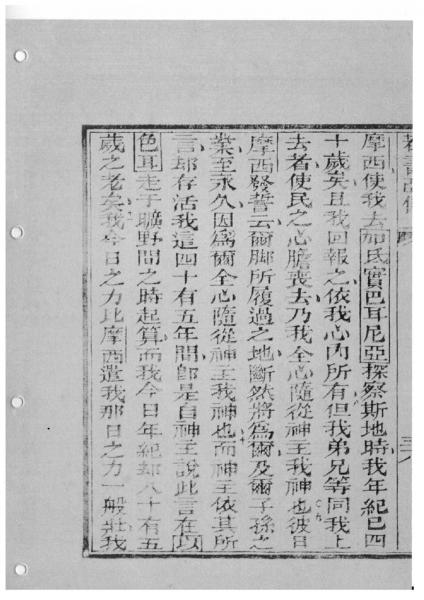 摩西使我去加氏實巴耳尼亞探察斯地時我年紀已四
十歲矣且我回報之依我心內所有但我弟兄等同我上
去者使民之心膽喪去乃我全心隨從神主我神也彼日
摩西發誓云爾脚所履過之地斷然將為爾及爾子孫之
業至永久因為爾全心隨從神主我神也而神主依其所
言却存活我這四十有五年間即是自神主說此言在以
色耳走于曠野間之時起算而我今日年紀却八十有五
歲之老矣我今日之力比摩西遣我那日之力一般壯我